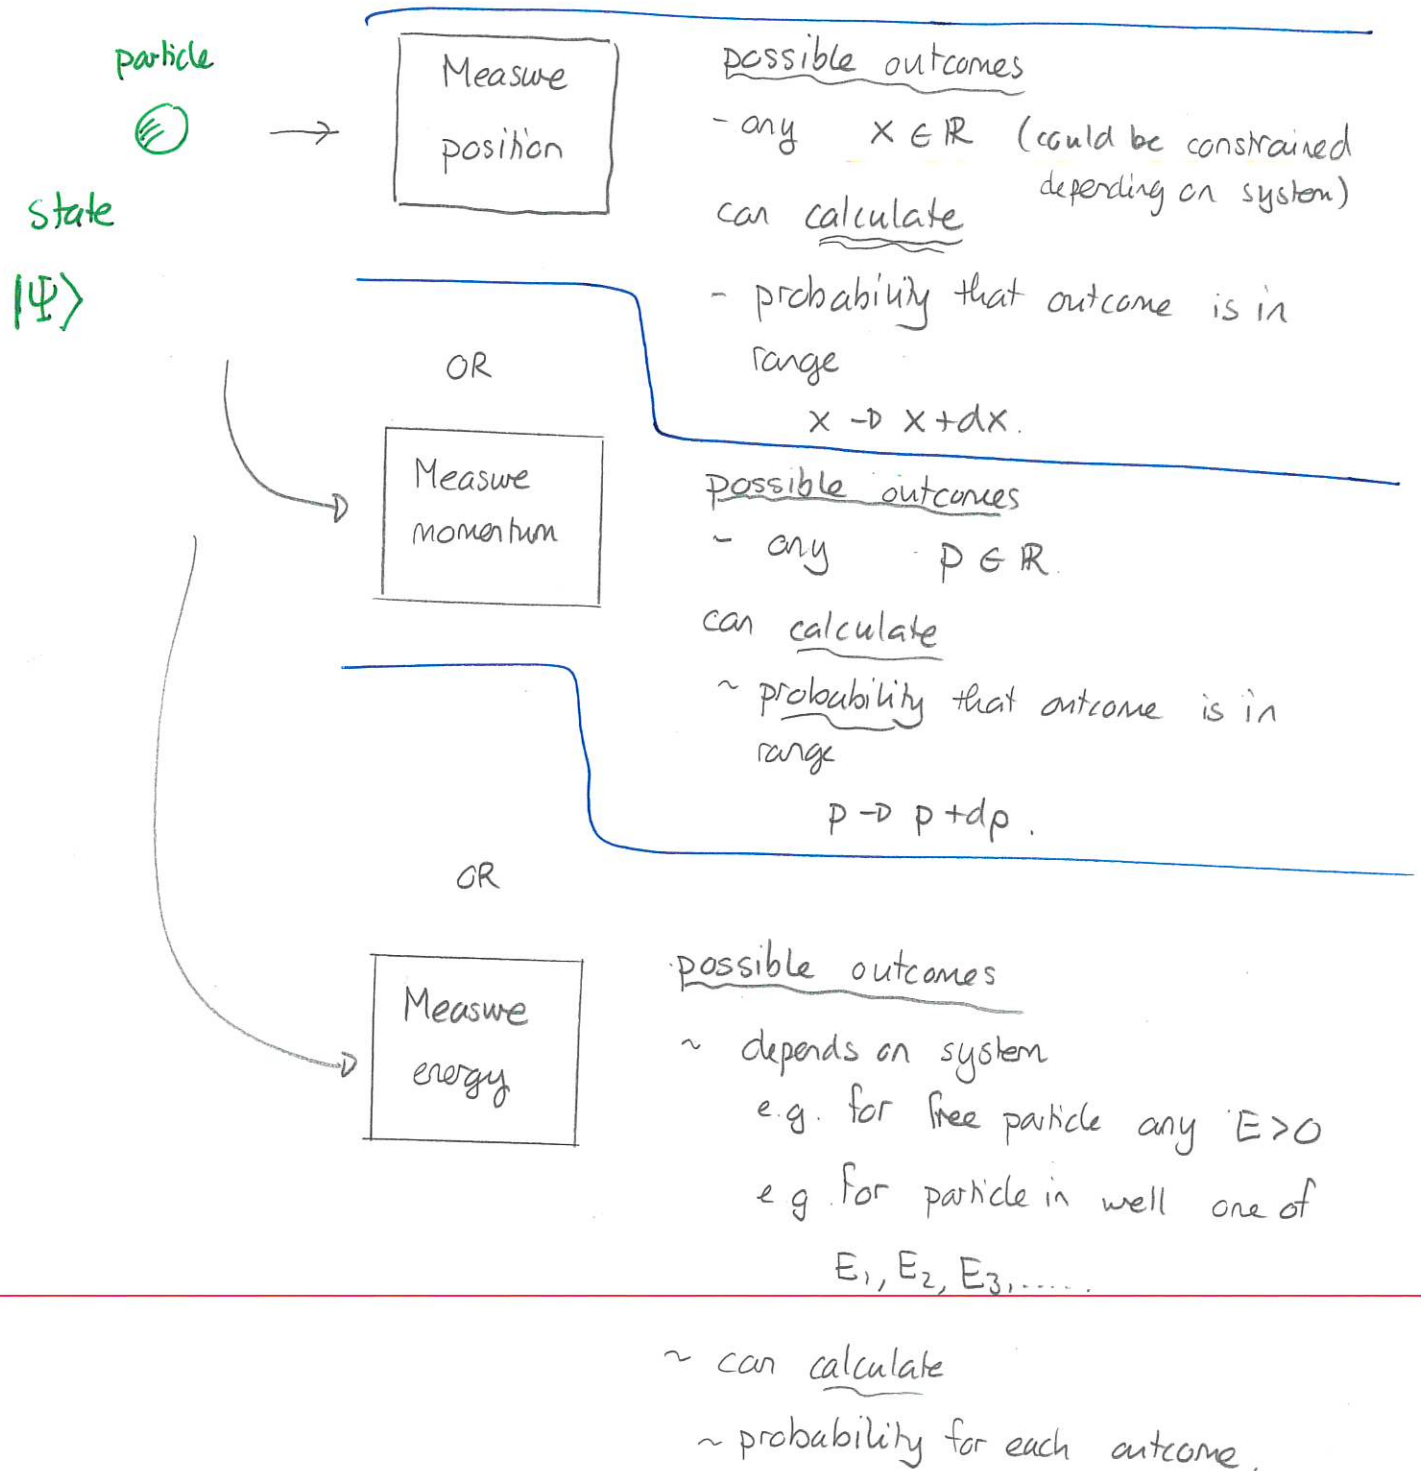 particle
state
|Ψ⟩
Measure
position
possible outcomes
- any x ∈ ℝ (could be constrained
depending on system)
can calculate
- probability that outcome is in
range
x → x+dx.
OR
Measure
momentum
possible outcomes
~ any p ∈ ℝ.
can calculate
~ probability that outcome is in
range
p → p+dp.
OR
Measure
energy
possible outcomes
~ depends on system
e.g. for free particle any E>0
e g for particle in well one of
E₁, E₂, E₃, .....
~ can calculate
~ probability for each outcome.